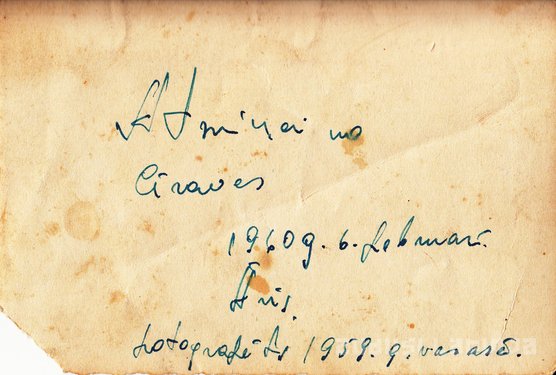 Atmiņai no
Ciravas
1960 g. 6. februarī.
fotografēts 1959. g. vasarā.